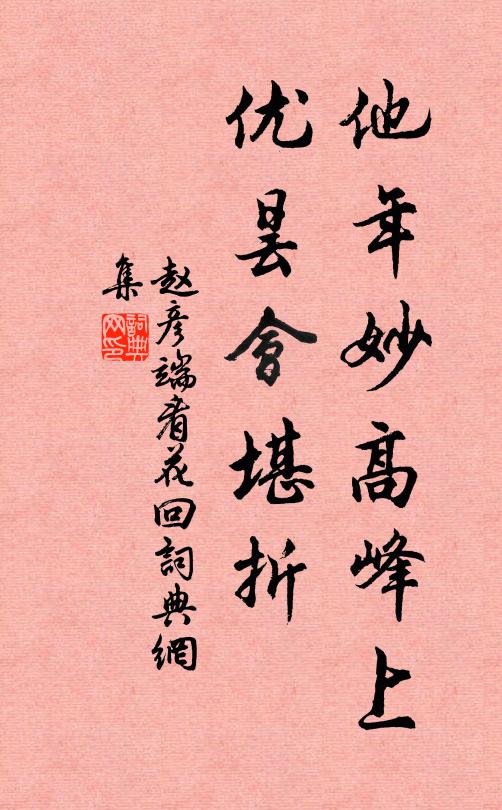 他年妙高峰上
优昙會堪折
赵彦端看花回詞典網
集
詞典网印